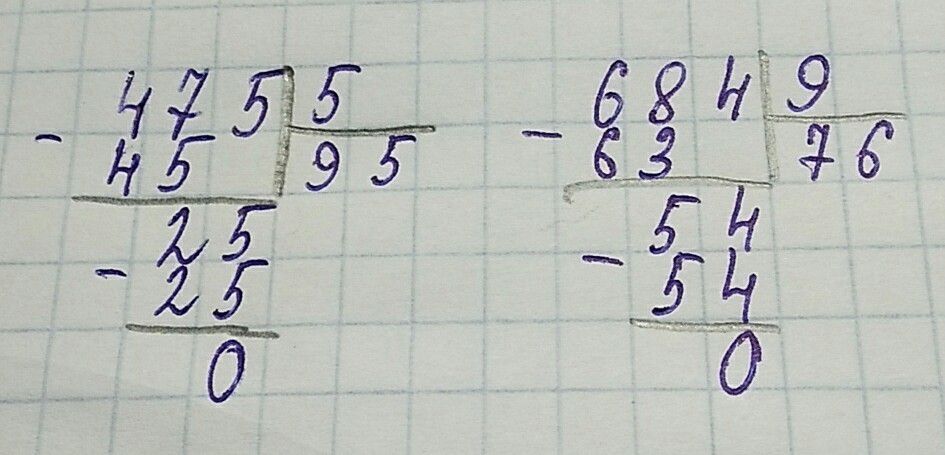 475 5
- 45 95
25
- 25
0
684 9
- 63 76
54
- 54
0